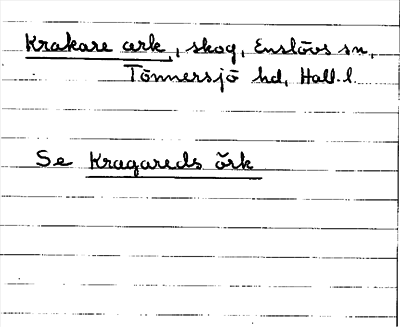 Krakare ark, skog, Enslövs sn,
Tönnersjö hd, Hall. l.
Se Kragareds örk